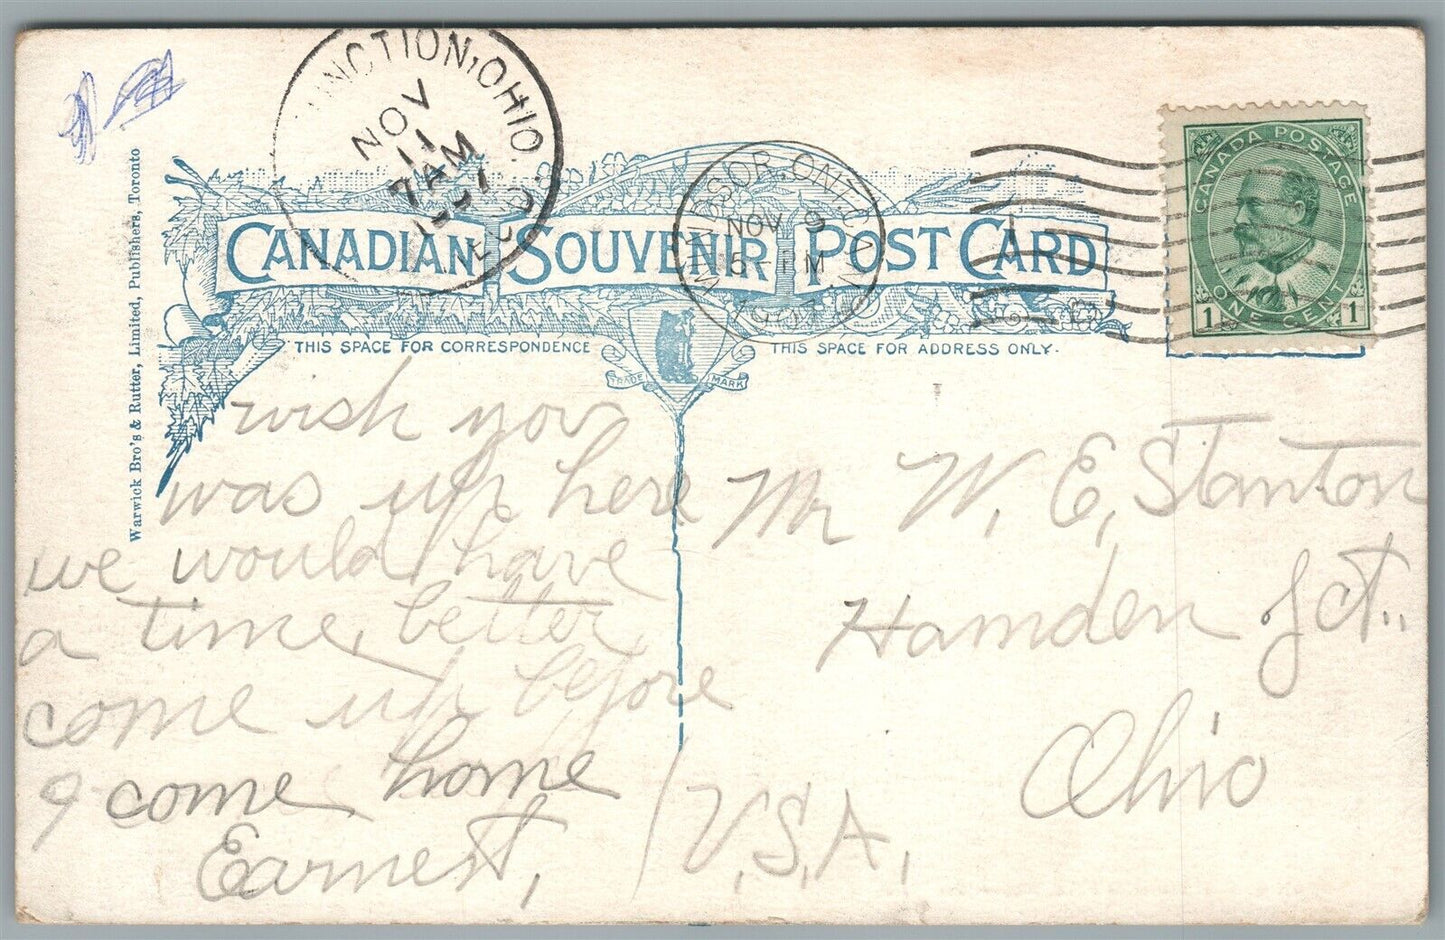 NCTION, OHIO.
NOV
11
7 AM
REC'D.
WINDSOR, ONT. CANADA
NOV 9
PM
1907
CANADA POSTAGE
1 ONE CENT 1
CANADIAN SOUVENIR POST CARD
THIS SPACE FOR CORRESPONDENCE
THIS SPACE FOR ADDRESS ONLY.
TRADE MARK
Warwick Bro's & Rutter, Limited, Publishers, Toronto
wish you
was up here
we would have
a time, better
come up before
I come home
Earnest,
Mr W, E, Stanton
Hamden Jct.,
Ohio
U,S,A,